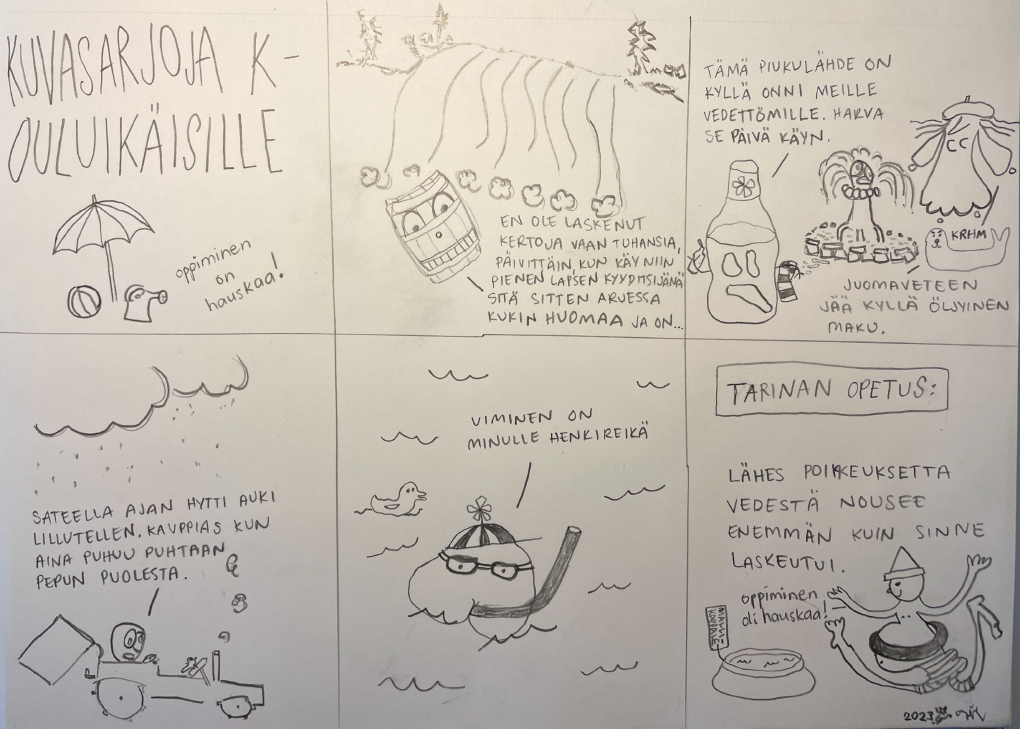 KUVASARJOJA K-
OULUIKÄISILLE
oppiminen
on
hauskaa!
EN OLE LASKENUT
KERTOJA VAAN TUHANSIA,
PÄIVITTÄIN, KUN KÄY NIIN
PIENEN LAPSEN KYYDITSIJÄNÄ
SITÄ SITTEN ARJESSA
KUKIN HUOMAA JA ON...
TÄMÄ PIUKULÄHDE ON
KYLLÄ ONNI MEILLE
VEDETTÖMILLE. HARVA
SE PÄIVÄ KÄYN.
KRHM
JUOMAVETEEN
JÄÄ KYLLÄ ÖLJYINEN
MAKU.
SATEELLA AJAN HYTTI AUKI
LILLUTELLEN. KAUPPIAS KUN
AINA PUHUU PUHTAAN
PEPUN PUOLESTA.
VIMINEN ON
MINULLE HENKIREIKÄ
TARINAN OPETUS:
LÄHES POIKKEUKSETTA
VEDESTÄ NOUSEE
ENEMMÄN KUIN SINNE
LASKEUTUI.
oppiminen
oli hauskaa!
2023